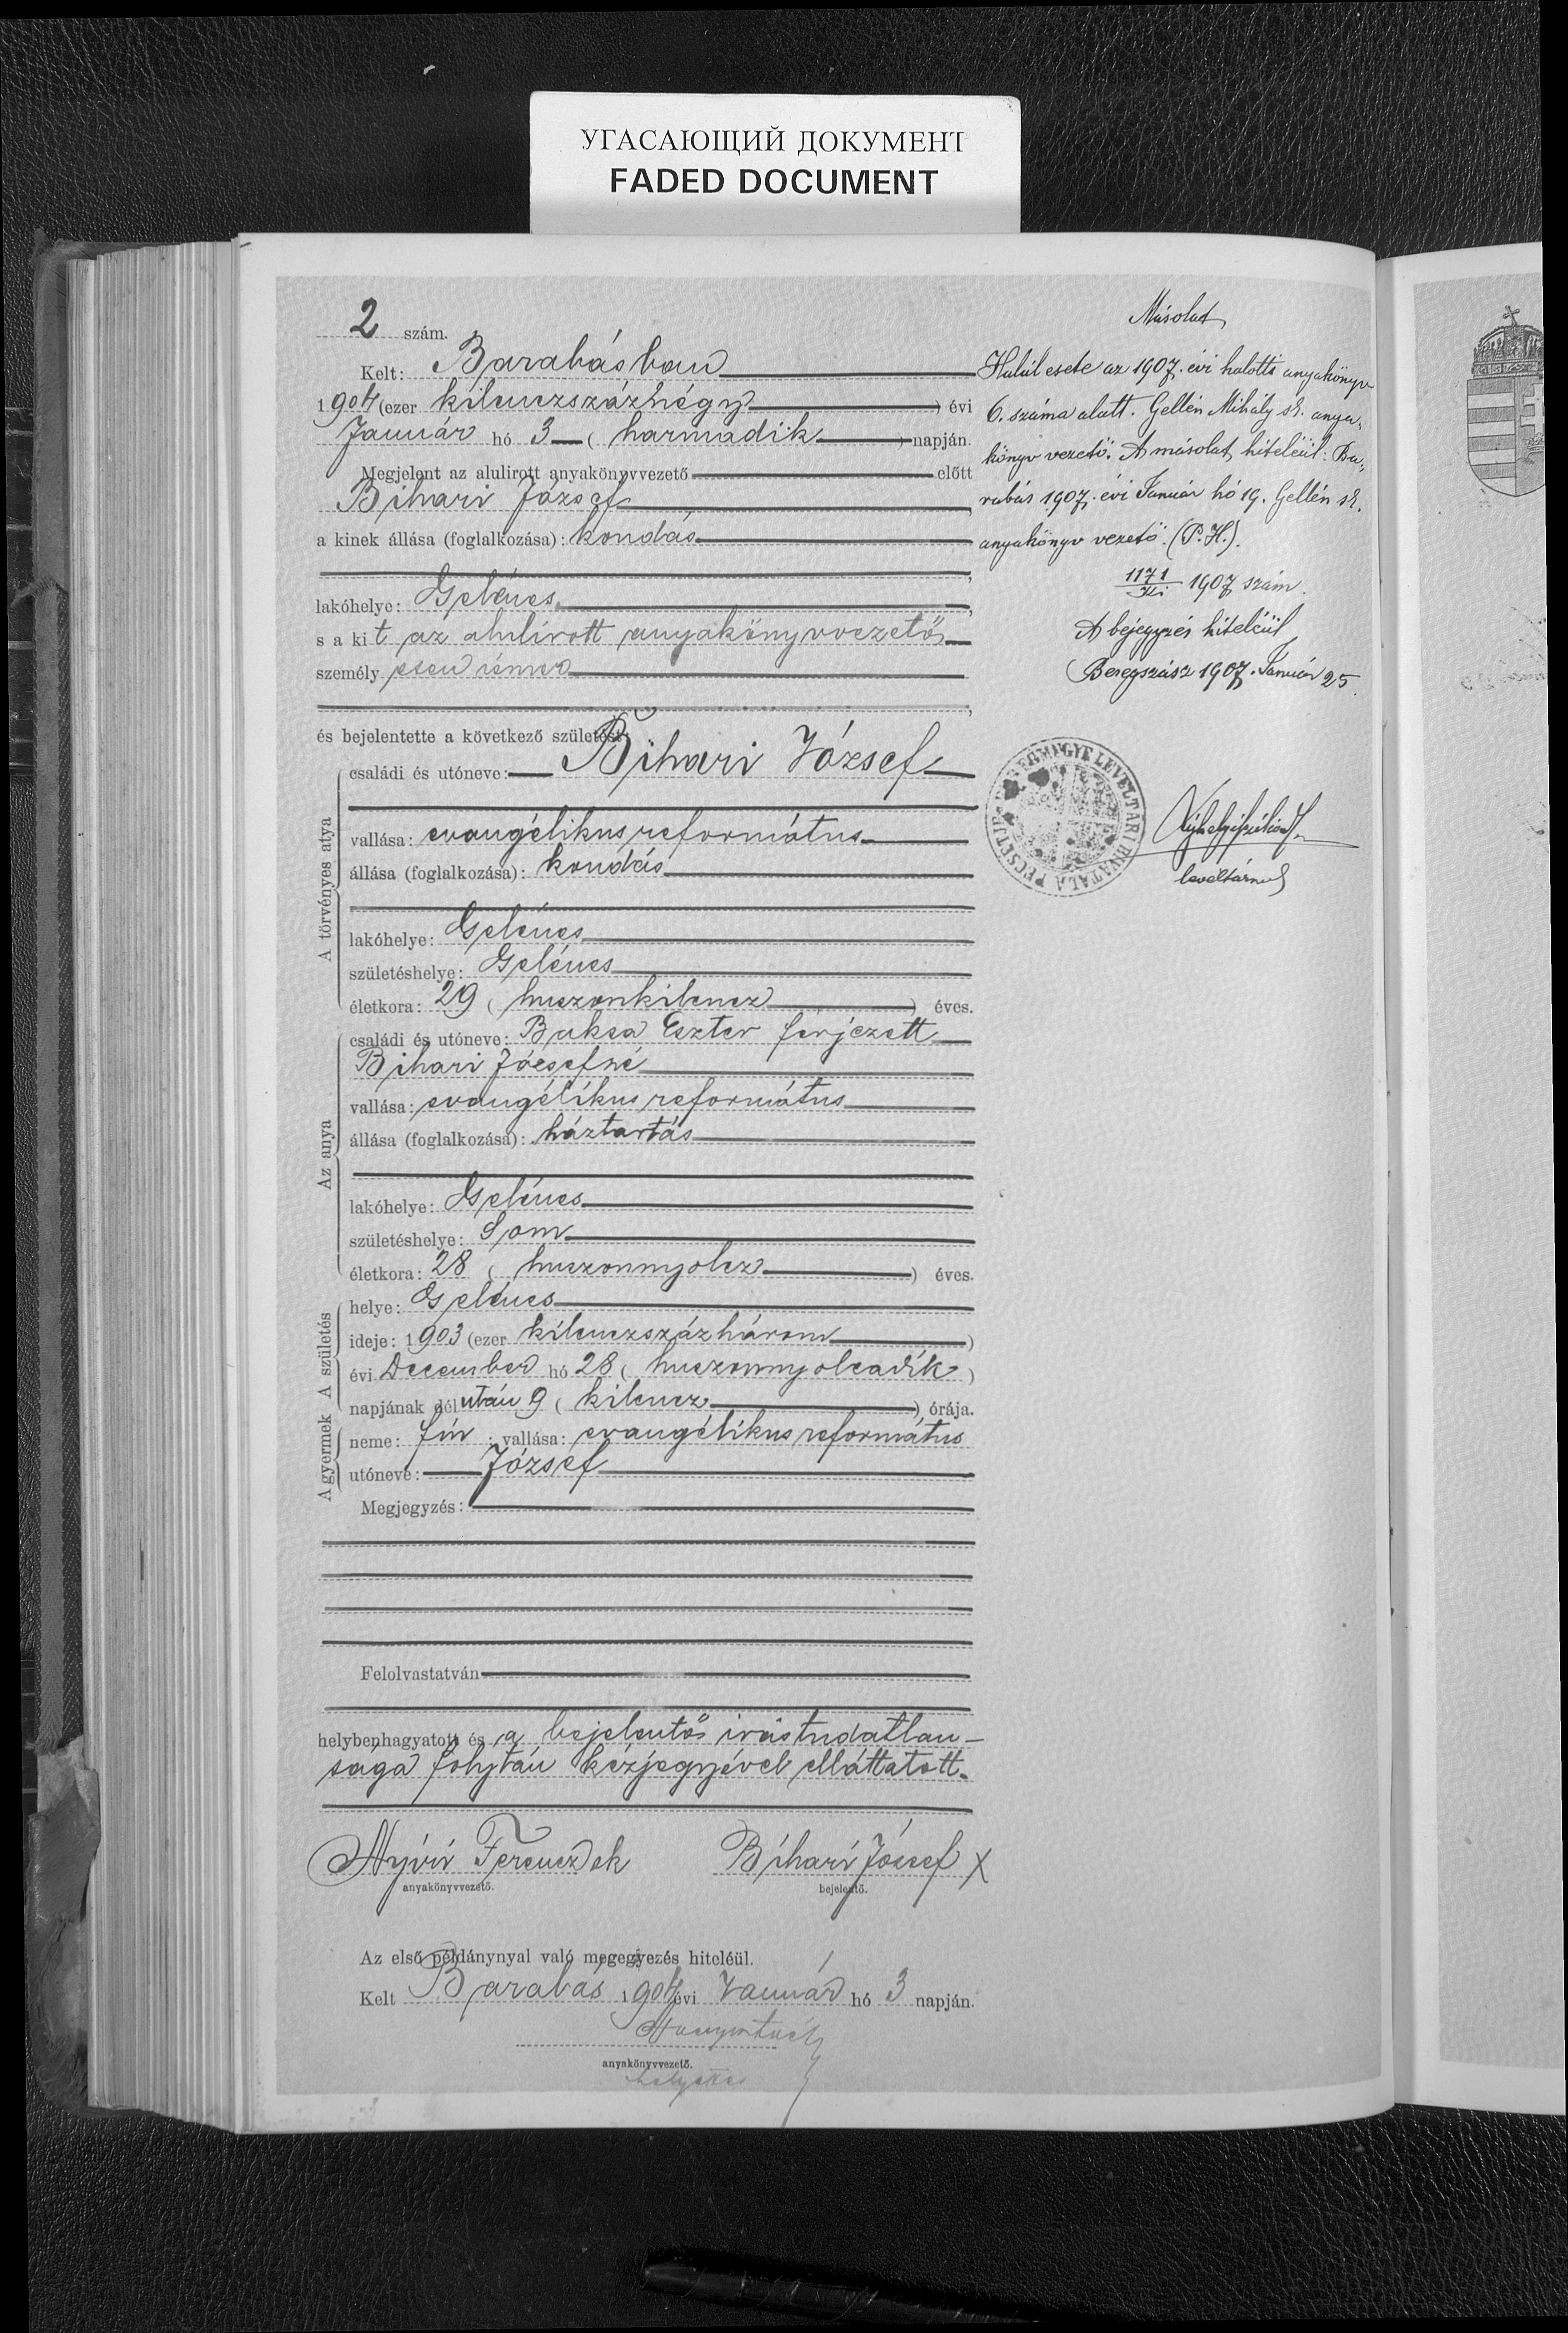 УГАСАЮЩИЙ ДОКУМЕНТ
FADED DOCUMENT
2 szám.
Kelt: Barabásban
1904 (ezer kilenczszáznégy) évi
Január hó 3 (harmadik) napján.
Megjelent az alulirott anyakönyvvezető előtt
Bihari József,
a kinek állása (foglalkozása): kondás
lakóhelye: Gelénes,
s a kit az alulírott anyakönyvvezető
személyesen ismer
és bejelentette a következő születést:
A törvényes atya
családi és utóneve: Bihari József
vallása: evangélikus református
állása (foglalkozása): kondás
lakóhelye: Gelénes
születéshelye: Gelénes
életkora: 29 (huszonkilencz) éves.
Az anya
családi és utóneve: Buksa Eszter férjezett
Bihari Józsefné
vallása: evangélikus református
állása (foglalkozása): háztartás
lakóhelye: Gelénes
születéshelye: Som
életkora: 28 (huszonnyolcz) éves.
A születés
helye: Gelénes
ideje: 1903 (ezer kilenczszázhárom)
évi December hó 28 (huszonnyolcadik)
napjának délután 9 (kilencz) órája.
A gyermek
neme: fiú; vallása: evangélikus református
utóneve: József
Megjegyzés:
Felolvastatván
helybenhagyatott és a bejelentő irástudatlan-
sága folytán kézjegyével elláttatott.
Nyíri Ferencz h
anyakönyvvezető.
Bihari József X
bejelentő.
Az első példánynyal való megegyezés hiteléül.
Kelt Barabás 1904 évi Január hó 3 napján.
anyakönyvvezető.
helyettes
Másolat
Halál esete az 1907. évi halotti anyakönyv
6. száma alatt. Gellén Mihály sk. anya-
könyv vezető. A másolat hiteléül: Ba-
rabás 1907. évi Január hó 19. Gellén sk.
anyakönyv vezető. (P.H.).
1171 1907 szám.
A bejegyzés hiteléül
Beregszász 1907. Január 25.
BEREGMEGYE LEVÉLTÁRI HIVATALA PECSÉTJE
levéltárnok